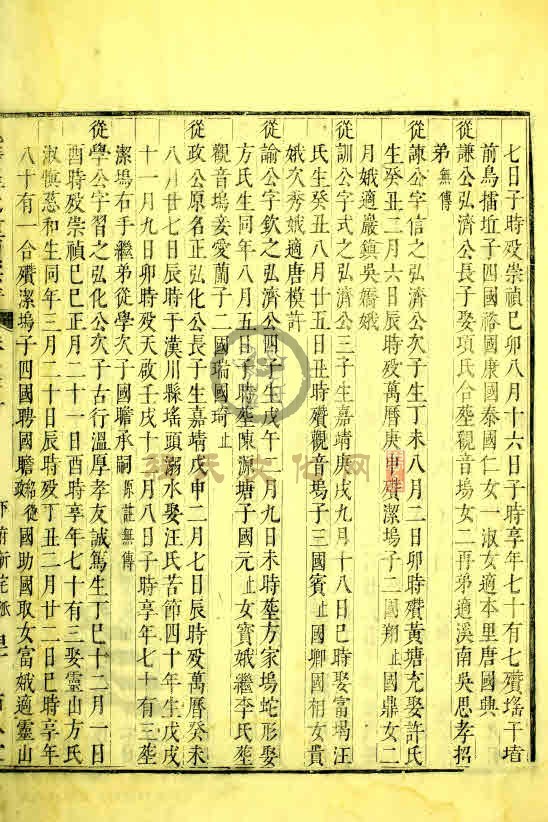 七日子時殁崇禎己卯八月十六日子時享年七十有七殯瑤干堉
前鳥擂坵子四國裕國康國泰國仁女一淑女適本里唐國典
從謙公弘濟公長子娶項氏合葬觀音塢女二再弟適溪南吳思孝招
弟無傳
從諫公字信之弘濟公次子生丁未八月二日卯時殯黃塘充娶許氏
生癸丑二月六日辰時殁萬曆庚申殯潔塢子二國翔止國鼎女二
月娥適巖鎮吳嬌娥
從訓公字式之弘濟公三子生嘉靖庚戌九月十八日巳時娶富塲汪
氏生癸丑八月廿五日丑時殯觀音塢子三國賓止國卿國相女貴
娥次秀娥適唐模許
從諭公字欽之弘濟公四子生戊午二月九日未時葬方家塢蛇形娶
方氏生同年八月五日子時葬陳源塘子國元止女寶娥繼李氏葬
觀音塢妾愛蘭子二國瑞國琦止
從政公原名正弘化公長子生嘉靖戊申二月七日辰時殁萬曆癸未
八月廿七日辰時于漢川縣瑤頭溺水娶汪氏苦節四十年生戊戌
十一月九日卯時殁天啟壬戌十二月八日子時享年七十有三葬
潔塢右手繼弟從學次子國瞻承嗣原註無傳
從學公字習之弘化公次子古行溫厚孝友誠篤生丁巳十二月一日
酉時殁崇禎己巳正月二十一日酉時享年七十有三娶靈山方氏
淑慎慈和生同年三月二十日辰時殁丁丑二月廿二日巳時享年
八十有一合殯潔塢子四國聘國瞻從國助國取女富娥適靈山